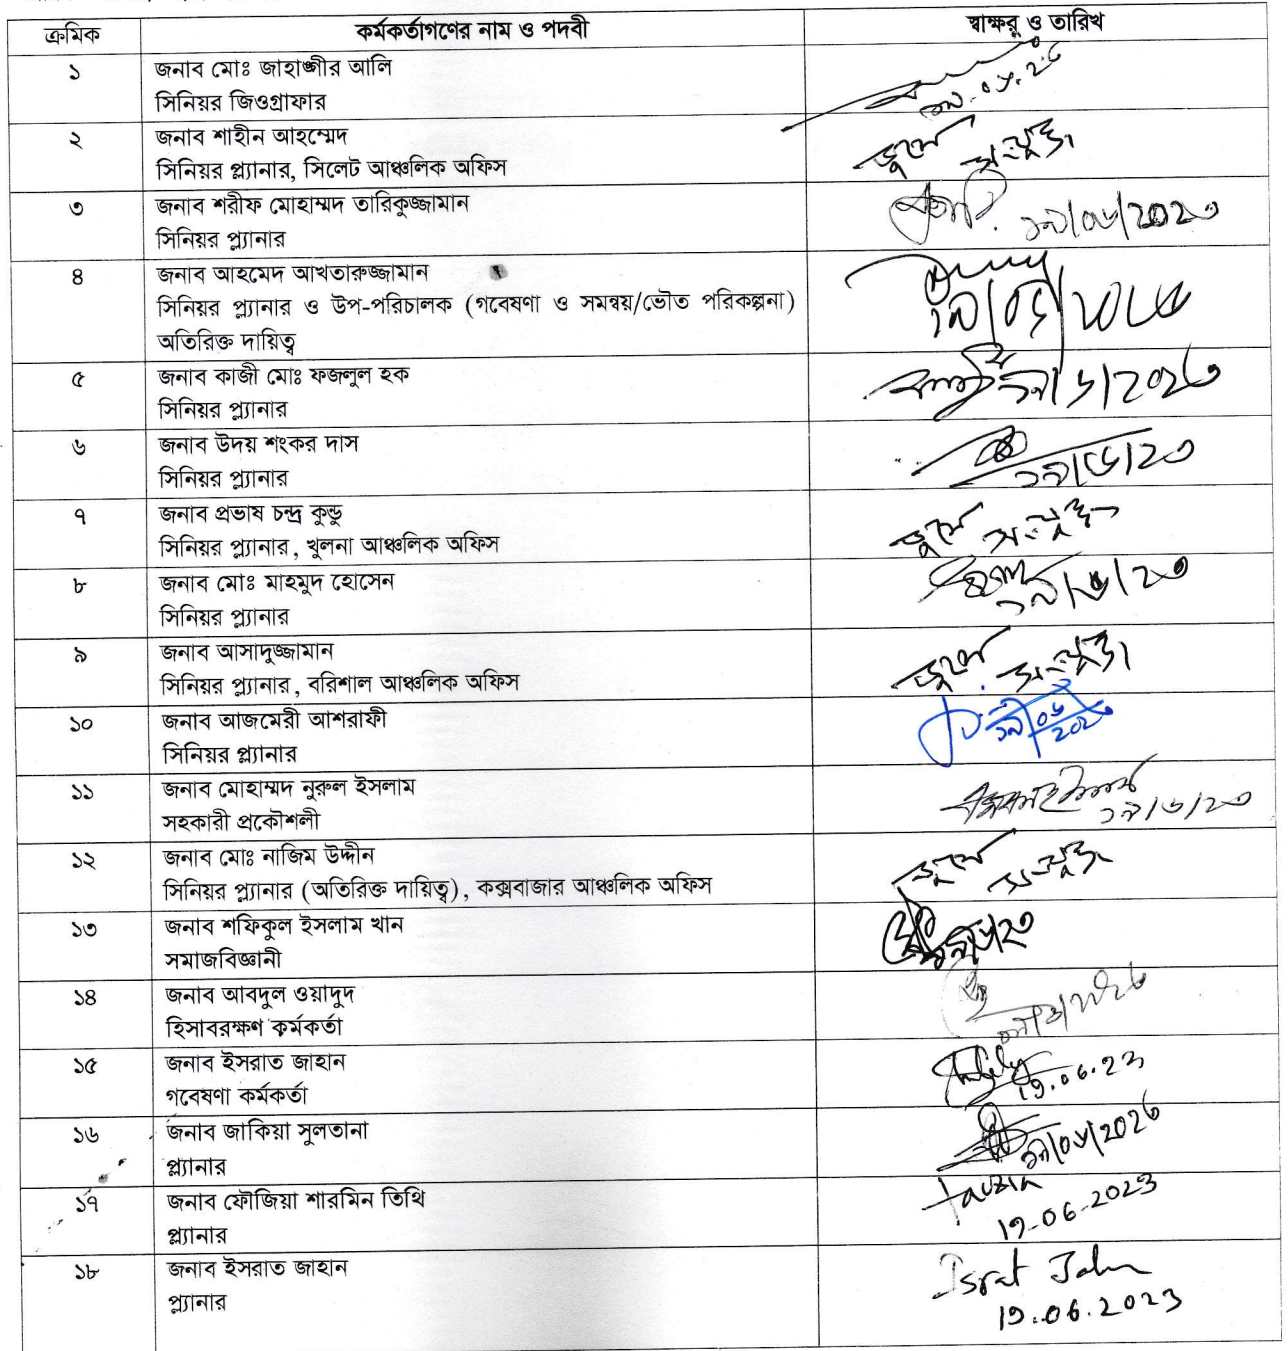 ক্রমিক কর্মকর্তাগণের নাম ও পদবী স্বাক্ষর ও তারিখ
১ জনাব মোঃ জাহাঙ্গীর আলি
সিনিয়র জিওগ্রাফার
২ জনাব শাহীন আহম্মেদ জুমে সংযুক্ত
সিনিয়র প্ল্যানার, সিলেট আঞ্চলিক অফিস
৩ জনাব শরীফ মোহাম্মদ তারিকুজ্জামান ১৯/০৬/2০2৩
সিনিয়র প্ল্যানার
৪ জনাব আহমেদ আখতারুজ্জামান
সিনিয়র প্ল্যানার ও উপ-পরিচালক (গবেষণা ও সমন্বয়/ভৌত পরিকল্পনা)
অতিরিক্ত দায়িত্ব
৫ জনাব কাজী মোঃ ফজলুল হক ১৯/৬/২০২৩
সিনিয়র প্ল্যানার
৬ জনাব উদয় শংকর দাস
সিনিয়র প্ল্যানার ১৯/৬/২৩
৭ জনাব প্রভাষ চন্দ্র কুন্ডু জুমে সংযুক্ত
সিনিয়র প্ল্যানার, খুলনা আঞ্চলিক অফিস
৮ জনাব মোঃ মাহমুদ হোসেন
সিনিয়র প্ল্যানার ১৯/৬/২৩
৯ জনাব আসাদুজ্জামান জুমে সংযুক্ত
সিনিয়র প্ল্যানার, বরিশাল আঞ্চলিক অফিস
১০ জনাব আজমেরী আশরাফী ১৯/০৬/২০২৩
সিনিয়র প্ল্যানার
১১ জনাব মোহাম্মদ নুরুল ইসলাম
সহকারী প্রকৌশলী ১৯/৬/২৩
১২ জনাব মোঃ নাজিম উদ্দীন জুমে সংযুক্ত
সিনিয়র প্ল্যানার (অতিরিক্ত দায়িত্ব), কক্সবাজার আঞ্চলিক অফিস
১৩ জনাব শফিকুল ইসলাম খান ১৯/৬/২৩
সমাজবিজ্ঞানী
১৪ জনাব আবদুল ওয়াদুদ
হিসাবরক্ষণ কর্মকর্তা
১৫ জনাব ইসরাত জাহান
গবেষণা কর্মকর্তা 19.06.23
১৬ জনাব জাকিয়া সুলতানা ১৯/০৬/২০২৩
প্ল্যানার
১৭ জনাব ফৌজিয়া শারমিন তিথি Fauzia
প্ল্যানার 19-06-2023
১৮ জনাব ইসরাত জাহান Israt Jahan
প্ল্যানার 19.06.2023